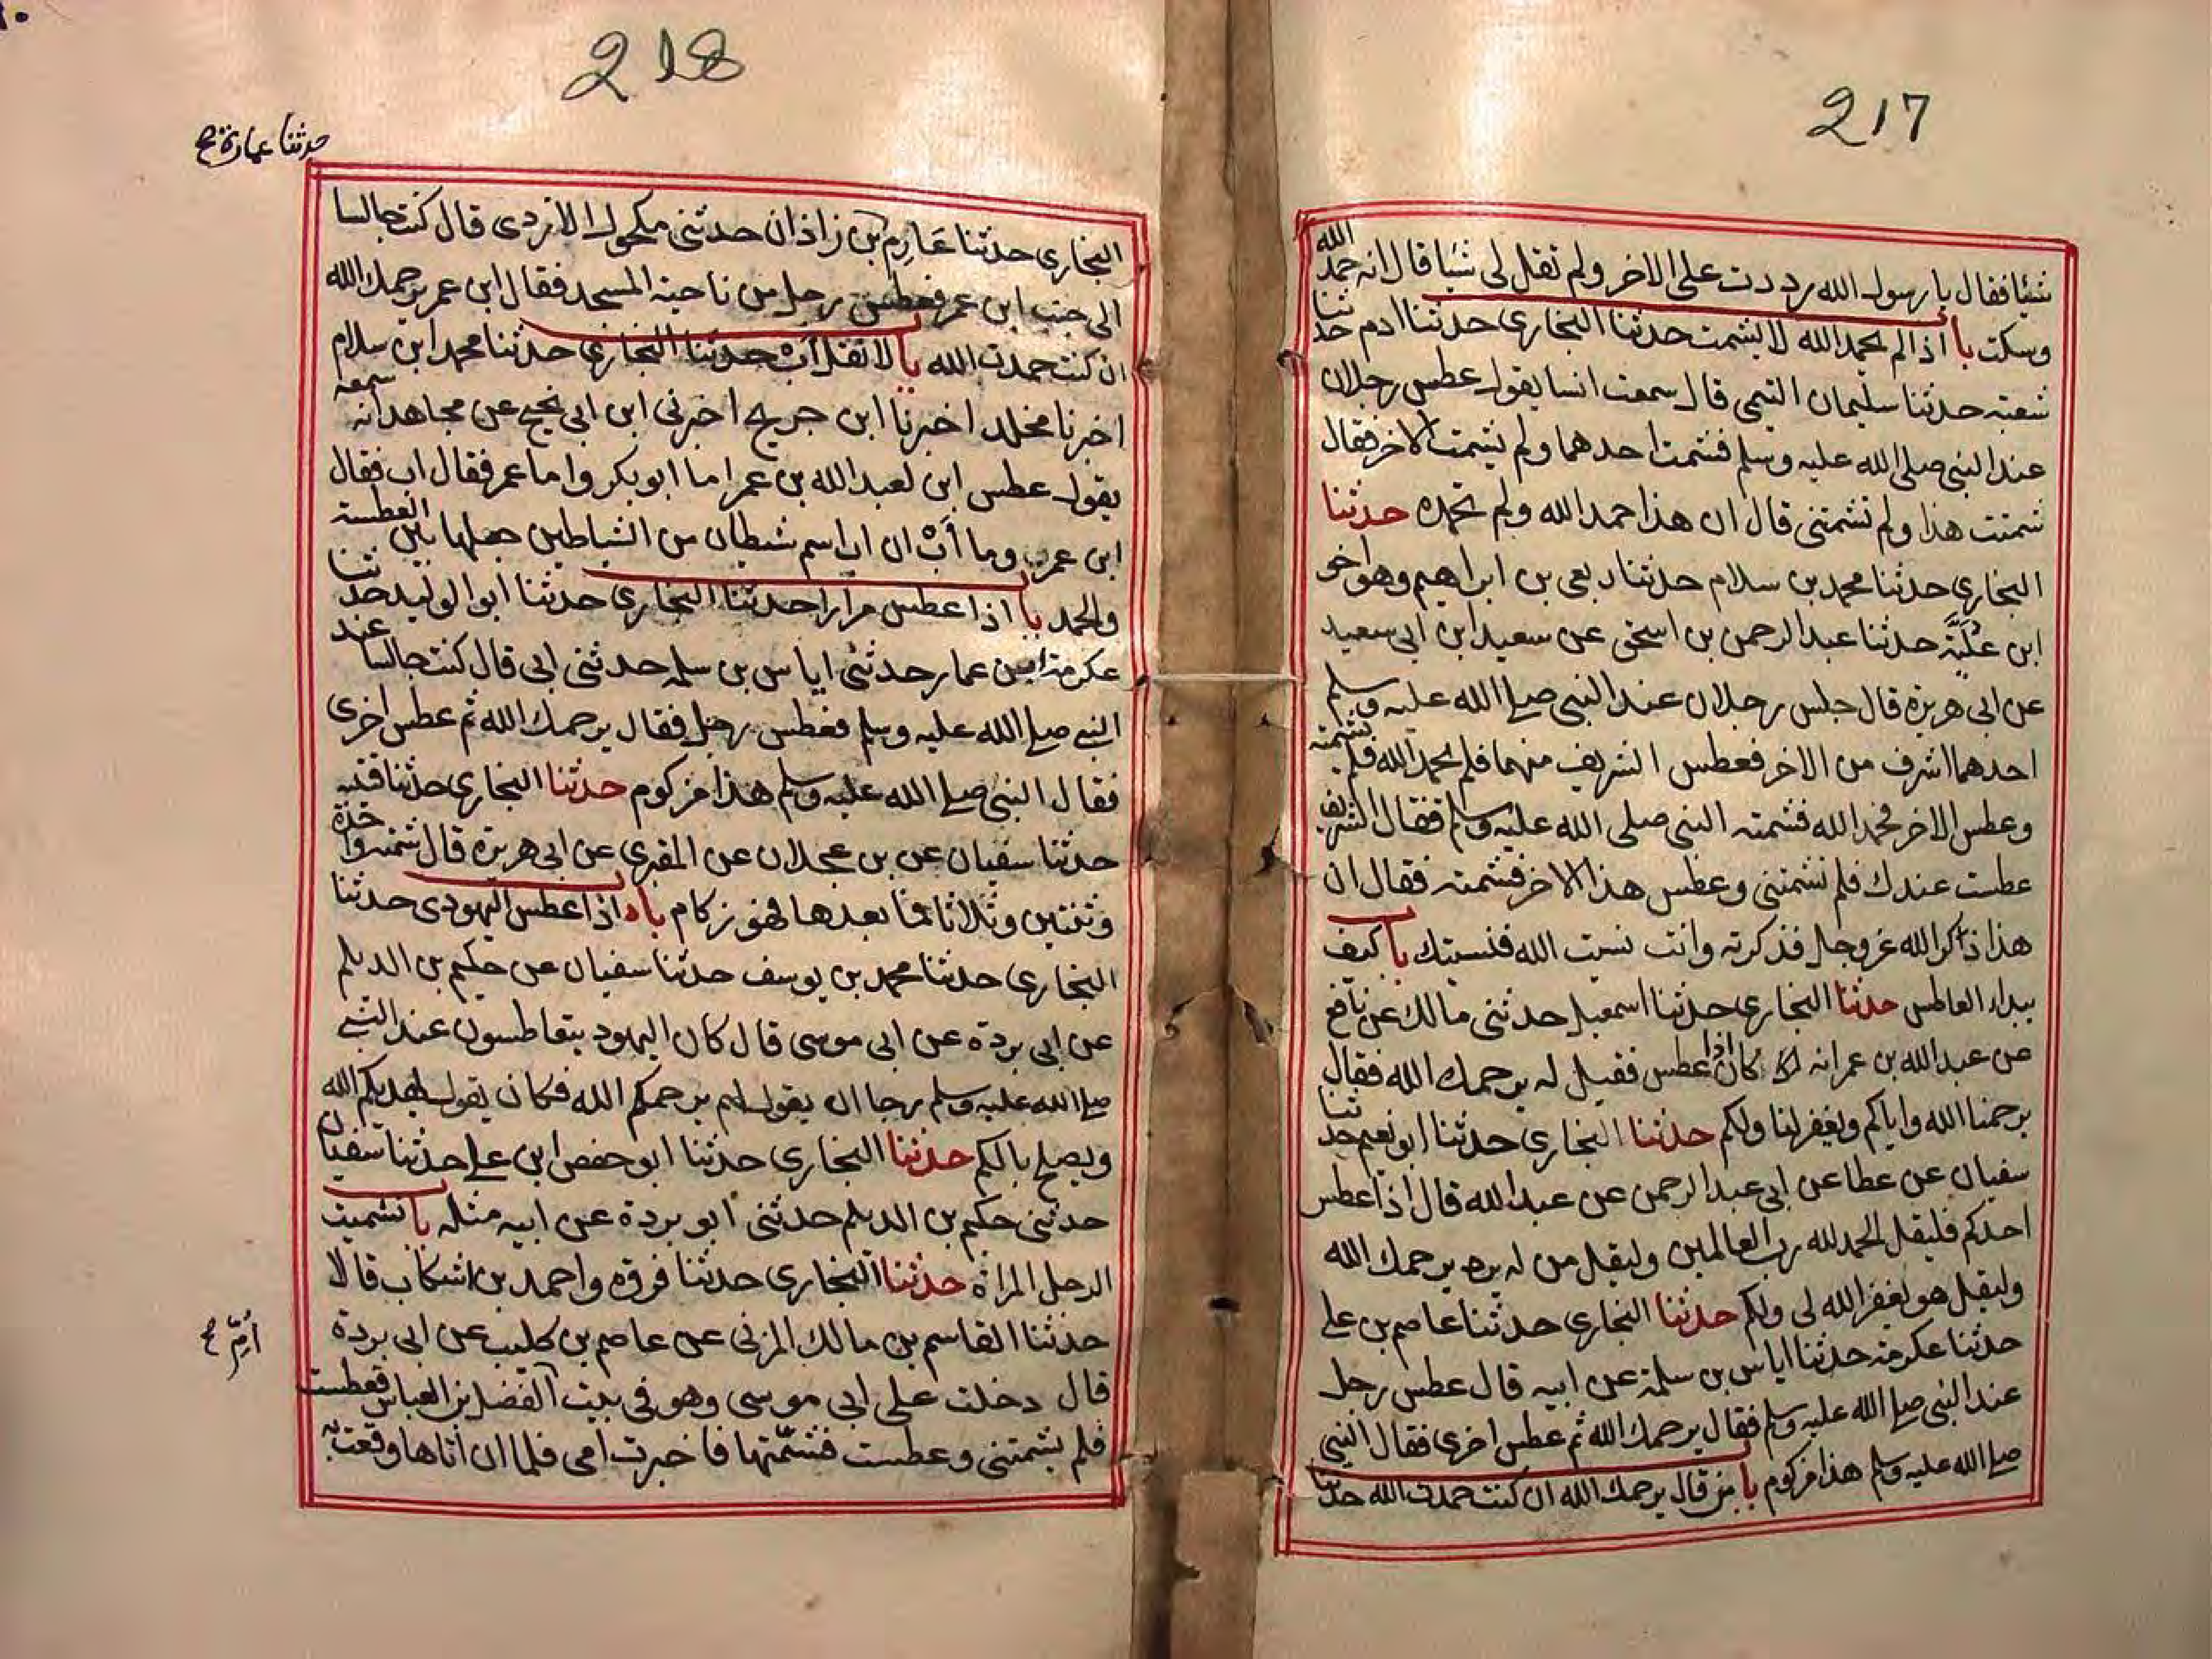 217
شيئا فقال يا رسول الله رددت على الاخر ولم تقل لي شيئا قال انه حمد الله
وسكت با اذا لم يحمد الله لا يشمت حدثنا البخاري حدثنا ادم حدثنا
شعبة حدثنا سليمان التيمي قال سمعت انسا يقول عطس رجلان
عند النبي صلى الله عليه وسلم فشمت احدهما ولم يشمت الاخر فقال
شمتت هذا ولم تشمتني قال ان هذا حمد الله ولم تحمده حدثنا
البخاري حدثنا محمد بن سلام حدثنا ربعي بن ابراهيم وهو اخو
ابن علية حدثنا عبد الرحمن بن اسحق عن سعيد ابن ابي سعيد
عن ابي هريرة قال جلس رجلان عند النبي صلى الله عليه وسلم
احدهما اشرف من الاخر فعطس الشريف منهما فلم يحمد الله فلم يشمته
وعطس الاخر فحمد الله فشمته النبي صلى الله عليه وسلم فقال الشريف
عطست عندك فلم تشمتني وعطس هذا الاخر فشمته فقال ان
هذا ذاكر الله عز وجل فذكرته وانت نسيت الله فنسيتك با كيف
يبداء العاطس حدثنا البخاري حدثنا اسمعيل حدثني مالك عن نافع
عن عبد الله بن عمر انه كان اذا عطس فقيل له يرحمك الله فقال
يرحمنا الله واياكم ويغفر لنا ولكم حدثنا البخاري حدثنا ابو نعيم حدثنا
سفيان عن عطا عن ابي عبد الرحمن عن عبد الله قال اذا عطس
احدكم فليقل الحمد لله رب العالمين وليقل من له يرد يرحمك الله
وليقل هو يغفر الله لي ولكم حدثنا البخاري حدثنا عاصم بن علي
حدثنا عكرمة حدثنا اياس بن سلمة عن ابيه قال عطس رجل
عند النبي صلى الله عليه وسلم فقال يرحمك الله ثم عطس اخرى فقال النبي
صلى الله عليه وسلم هذا مزكوم با من قال يرحمك الله ان كنت حمدت الله حدثنا
218
حدثنا عمارة ح
البخاري حدثنا عارم بن زاذان حدثني مكحول الازدي قال كنت جالسا
الى جنب ابن عمر فعطس رجل من ناحية المسجد فقال ابن عمر يرحمك الله
ان كنت حمدت الله با لا تقل اب حدثنا البخاري حدثنا محمد ابن سلام
اخبرنا مخلد اخبرنا ابن جريج اخبرني ابن ابي نجيح عن مجاهد انه سمعه
يقول عطس ابن لعبد الله بن عمر اما ابو بكر واما عمر فقال اب فقال
ابن عمر وما اب ان اب اسم شيطان من الشياطين جعلها بين العطسة
والحمد با اذا عطس مرارا حدثنا البخاري حدثنا ابو الوليد حدثنا
عكرمة ابن عمار حدثني اياس بن سلمة حدثني ابي قال كنت جالسا عند
النبي صلى الله عليه وسلم فعطس رجل فقال يرحمك الله ثم عطس اخرى
فقال النبي صلى الله عليه وسلم هذا مزكوم حدثنا البخاري حدثنا قتيبة
حدثنا سفيان عن بن عجلان عن المقبري عن ابي هريرة قال شمته واحدة
وثنتين وثلاثا فما بعدها فهو زكام با اذا عطس اليهودي حدثنا
البخاري حدثنا محمد بن يوسف حدثنا سفيان عن حكيم بن الديلم
عن ابي بردة عن ابي موسى قال كان اليهود يتعاطسون عند النبي
صلى الله عليه وسلم رجا ان يقول لهم يرحمكم الله فكان يقول يهديكم الله
ويصلح بالكم حدثنا البخاري حدثنا ابو حفص ابن علي حدثنا سفيان
حدثني حكيم بن الديلم حدثني ابو بردة عن ابيه مثله با تشميت
الرجل المراة حدثنا البخاري حدثنا فروة واحمد بن اشكاب قالا
حدثنا القاسم بن مالك المزني عن عاصم بن كليب عن ابي بردة
قال دخلت على ابي موسى وهو في بيت الفضل بن العباس فعطست
فلم يشمتني وعطست فشمتها فاخبرت امي فلما ان اتاها وقعت به